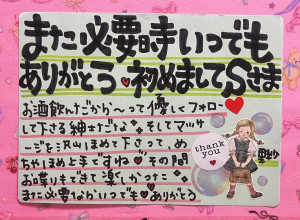 また必要時いつでも
ありがとう♥初めましてSさま
お酒飲んだから〜って優しくフォロー♥
して下さる紳士だな。そしてマッサ
ージを沢山ほめて下さって、め
ちゃほめ上手ですね♥その間
お喋りもできて楽しかった
また必要なかいつでも♥ありがとう
thank
you